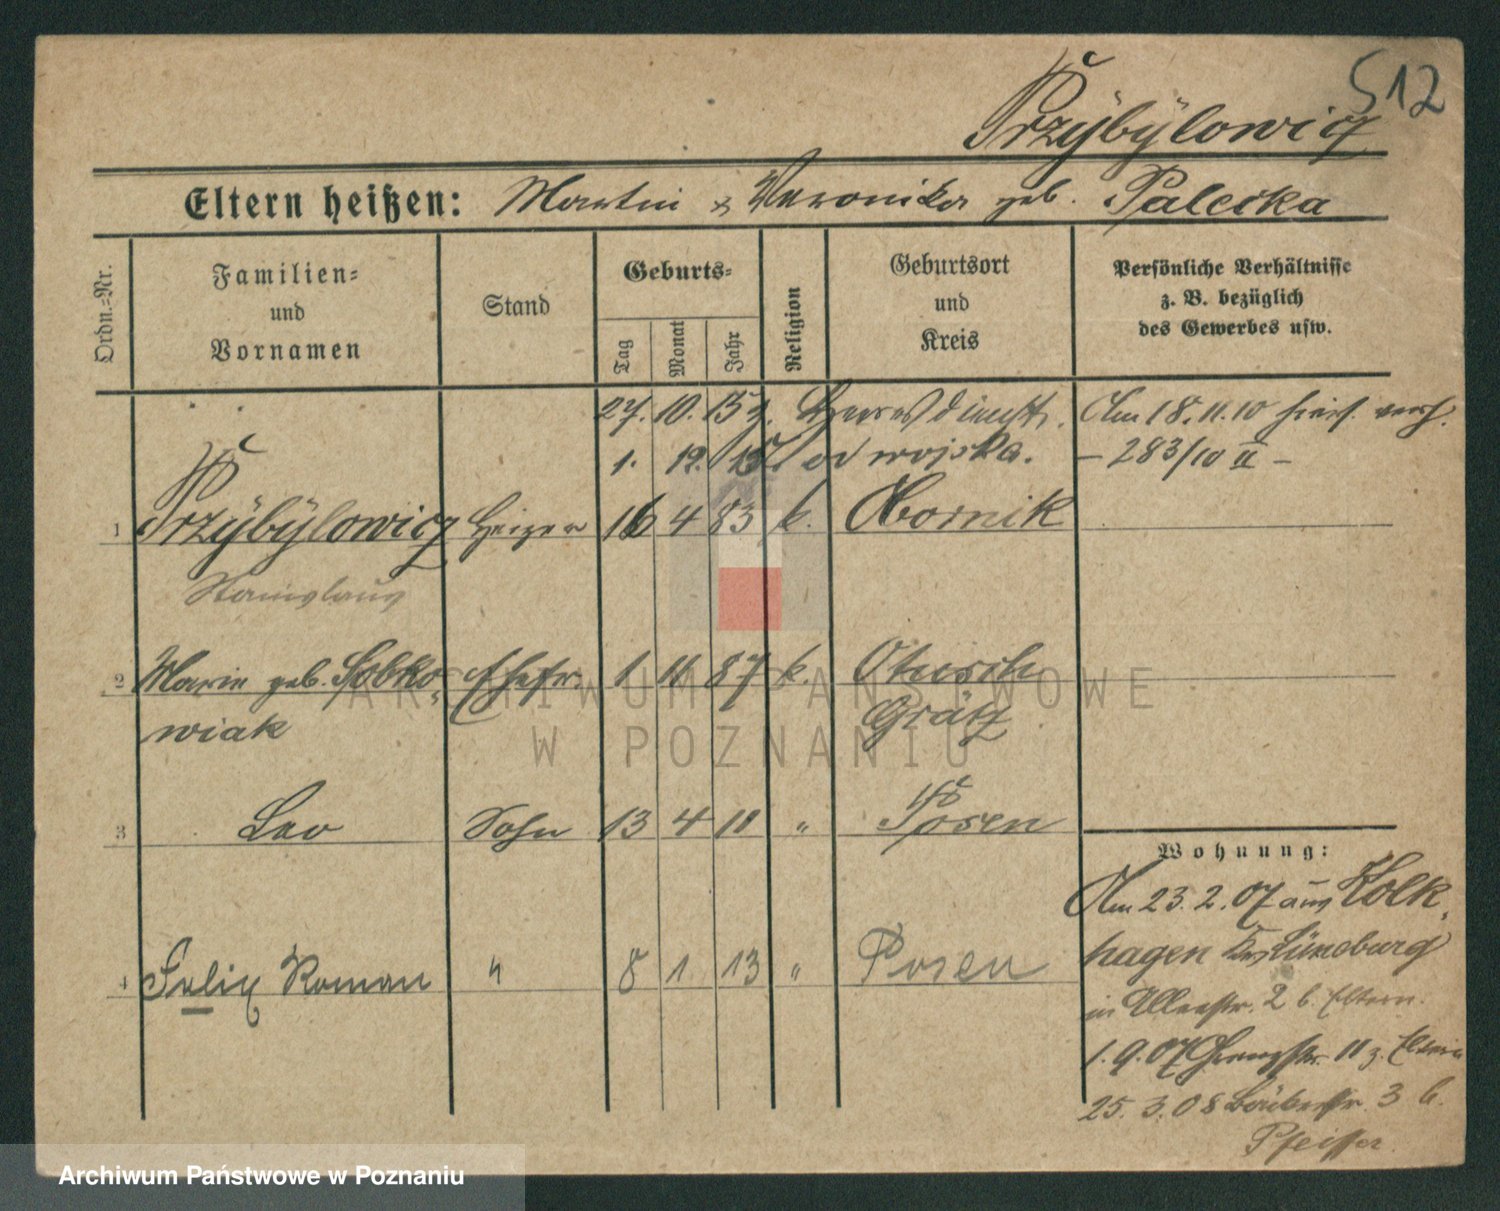 512
Przÿbÿlowicz
Eltern heißen: Martin & Veronika geb. Palecka
Ordn.-Nr.
Familien-
und
Vornamen
Stand
Geburts-
Tag
Monat
Jahr
Religion
Geburtsort
und
Kreis
Persönliche Verhältnisse
z. B. bezüglich
des Gewerbes usw.
27. 10. 15 z. Heeresdienst.
Am 18. 11. 10 hier verh.
1. 12. od wojska.
— 283/10 II —
1 Przÿbÿlowicz Heizer 16 4 83 k. Obornik
Stanislaus
2 Marie geb. Sobko- Ehefr. 1 11 87 k. Otusch
wiak Grätz
3 Leo Sohn 13 4 11 " Posen
4 Felix Roman " 8 1 13 " Posen
Wohnung:
Am 23. 2. 07 aus Kolk-
hagen Krs Lüneburg
in 2 b. Eltern.
1. 9. 07 Grenzstr. 11 z. Eltern
25. 3. 08 3 b.
Pfeiffer.
ARCHIWUM PAŃSTWOWE
W POZNANIU
Archiwum Państwowe w Poznaniu